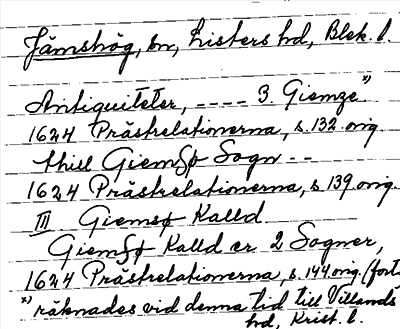 Jämshög, sn, Listers hd, Blek. l.
Antiquiteter, ---- 3. Giemze x)
1624 Prästrelationerna, s. 132 orig.
thill Giemsø Sogn --
1624 Prästrelationerna, s. 139 orig.
III Giemsø Kalld
Giemsø Kalld er 2 Sogner,
1624 Prästrelationerna, s. 144 orig. (forts
x) räknades vid denna tid till Villands
hd, Krist. l.